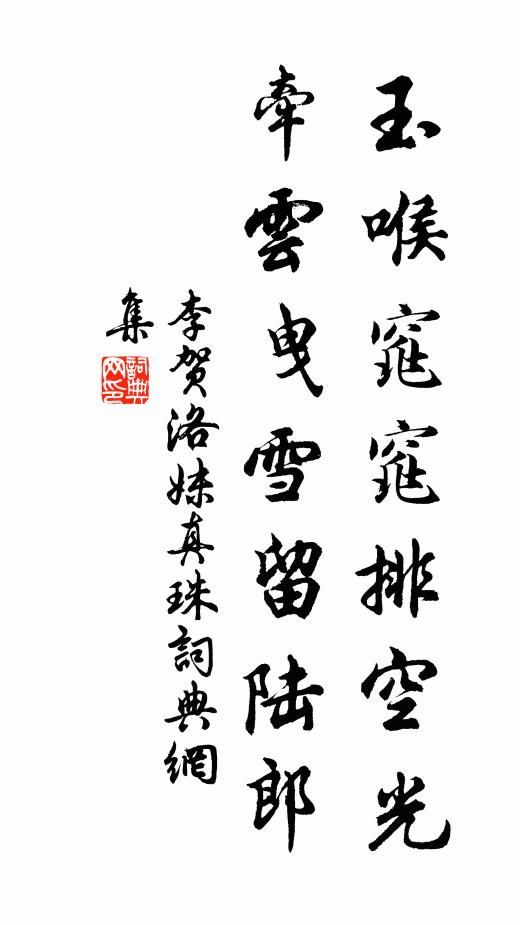 玉喉窕窕排空光
牽雲曳雪留陆郎
李贺洛姝真珠詞典網
集
詞典网印